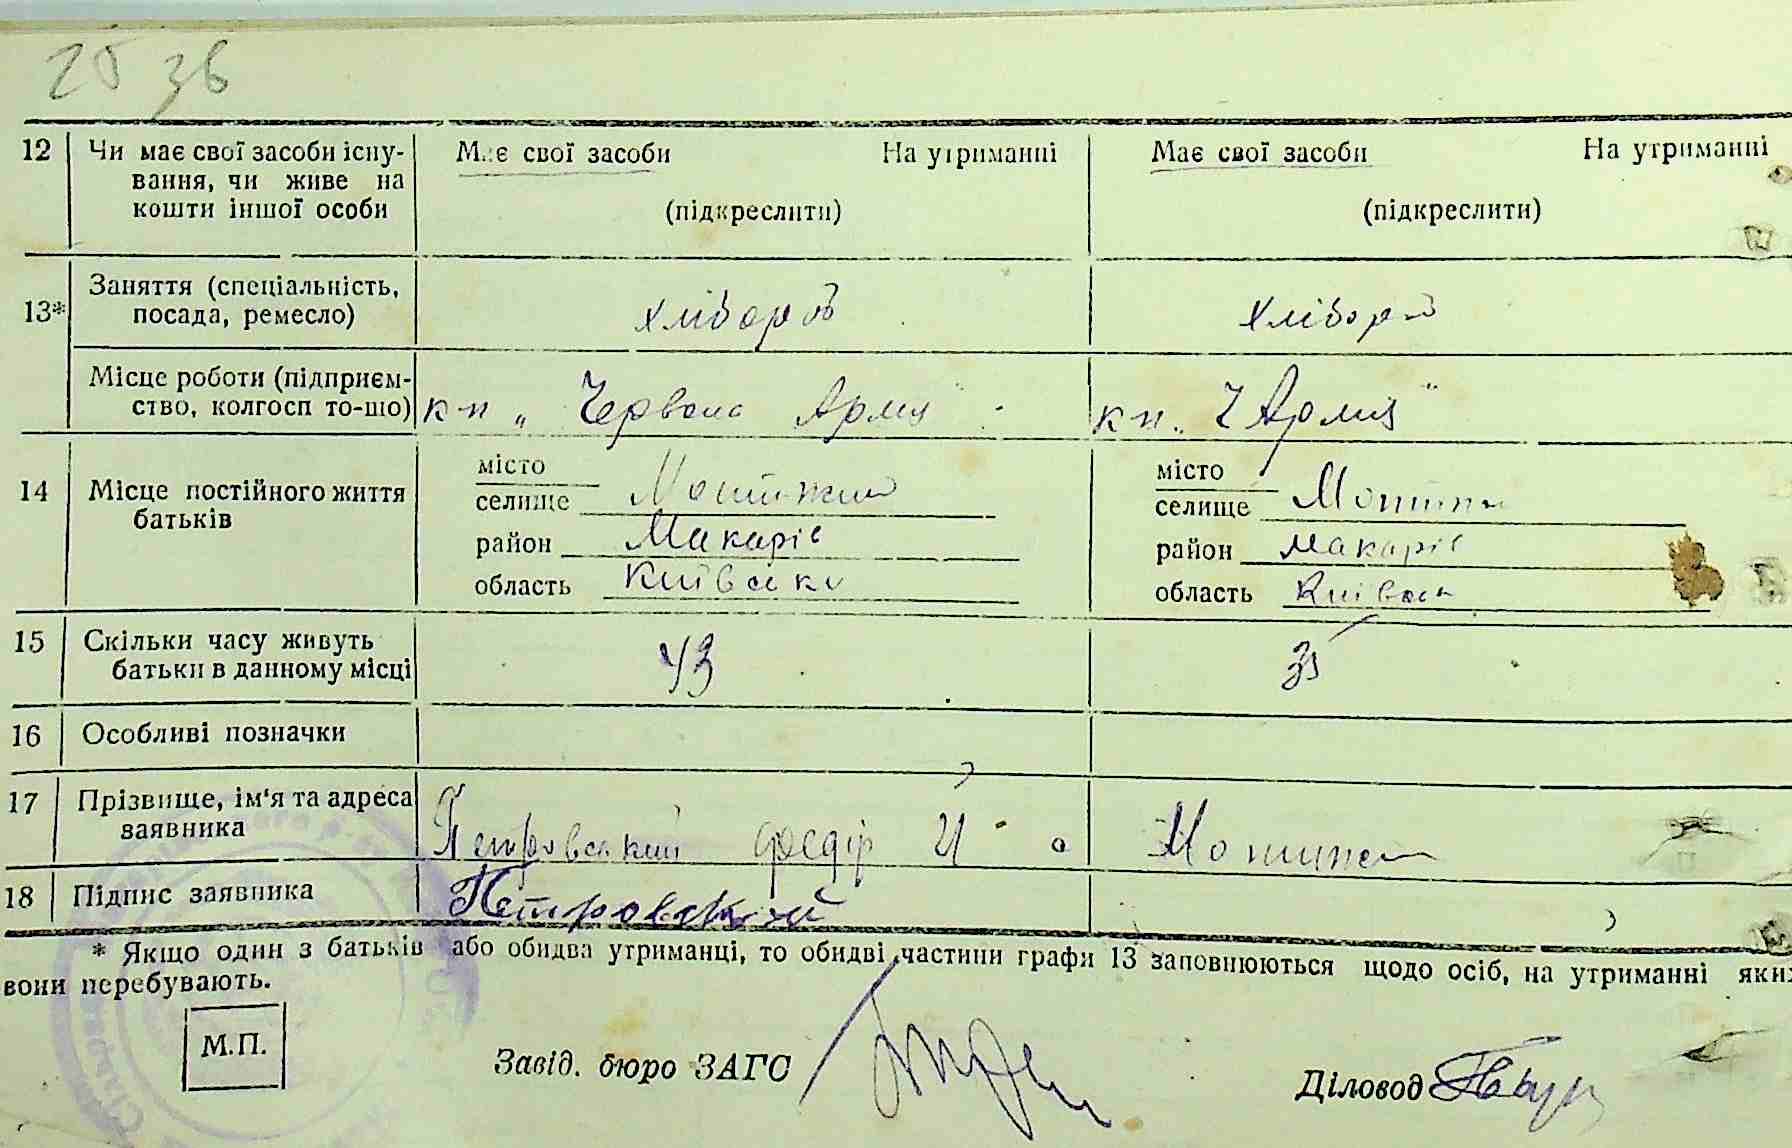 25 зв
12 Чи має свої засоби існу- Має свої засоби На утриманні Має свої засоби На утриманні
вання, чи живе на
кошти іншої особи (підкреслити) (підкреслити)
Заняття (спеціальність,
13* посада, ремесло) хлібороб хлібороб
Місце роботи (підприєм-
ство, колгосп то-що) к-п „Червона Армія" к-п. „Ч Армія"
місто місто
14 Місце постійного життя селище Мотижин селище Мотижин
батьків район Макарів район Макарів
область Київська область Київськ
15 Скільки часу живуть 43 35
батьки в данному місці
16 Особливі позначки
17 Прізвище, ім'я та адреса
заявника Петровський Федір Й с Мотижин
18 Підпис заявника Петровський
* Якщо один з батьків або обидва утриманці, то обидві частини графи 13 заповнюються щодо осіб, на утриманні яких
вони перебувають.
М.П. Завід. бюро ЗАГС Діловод